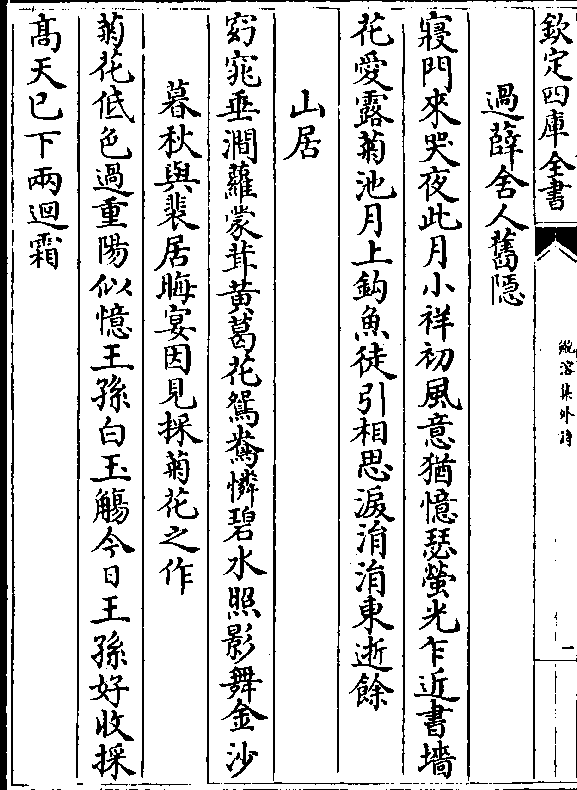 欽定四庫全書
鮑溶集外詩
一
過薛舍人舊隠
寢門來哭夜此月小祥初風意猶憶瑟螢光乍近書墻
花愛露菊池月上鈎魚徒引相思淚涓涓東逝餘
山居
窈窕垂澗蘿蒙茸黄葛花鴛鴦憐碧水照影舞金沙
暮秋與裴居晦宴因見採菊花之作
菊花低色過重陽似憶王孫白玉觴今日王孫好收採
髙天已下兩迴霜